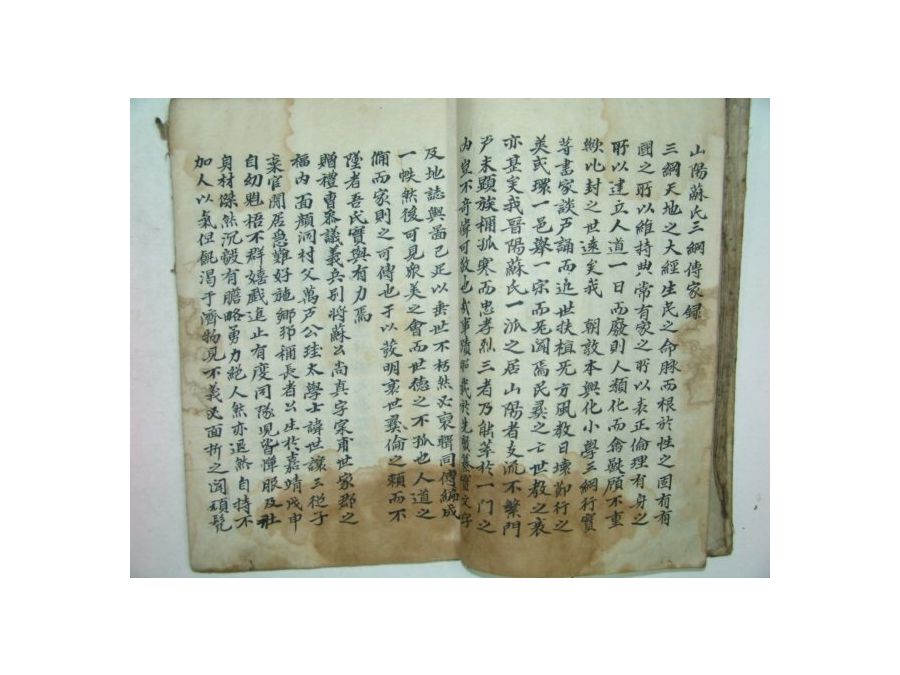 山陽蘇氏三綱傳家録
三綱天地之大經生民之命脉而根於性之固有有
國之所以維持典常有家之所以表正倫理有身之
所以建立人道一日而廢則人類化而禽獸顧不重
歟比封之世遠矣我 朝敦本興化小學三綱行實
等書家談戶誦而近世扶植死方風敎日壞節行之
美或環一邑舉一宗而死聞焉民彝之亡世敎之衰
亦甚矣我晉陽蘇氏一派之居山陽者支流不繁門
戶未顯族稱孤寒而忠孝烈三者乃能萃於一門之
內豈不奇偉可敬也
及地誌輿啚已足以垂世不朽然必裒聯同傳編成
一帙然後可見衆美之會而世德之不孤也人道之
備而家則之可傳也于以發明衰世彝倫之賴而不
墜者吾氏實與有力焉
贈禮曹叅議義兵別將蘇公尚真字實甫世家郡之
福內面顏洞村父萬戶公珪太學士諱世讓三從子
棄官閒居急難好施鄉邦稱長者公生於嘉靖戊申
自幼魁梧不群嬉戲進止有度同隊児皆憚服及壯
身材傑然沉毅有膽略勇力絕人然亦退然自持不
加人以氣但飢渴于濟物見不義必面折之聞頑髡